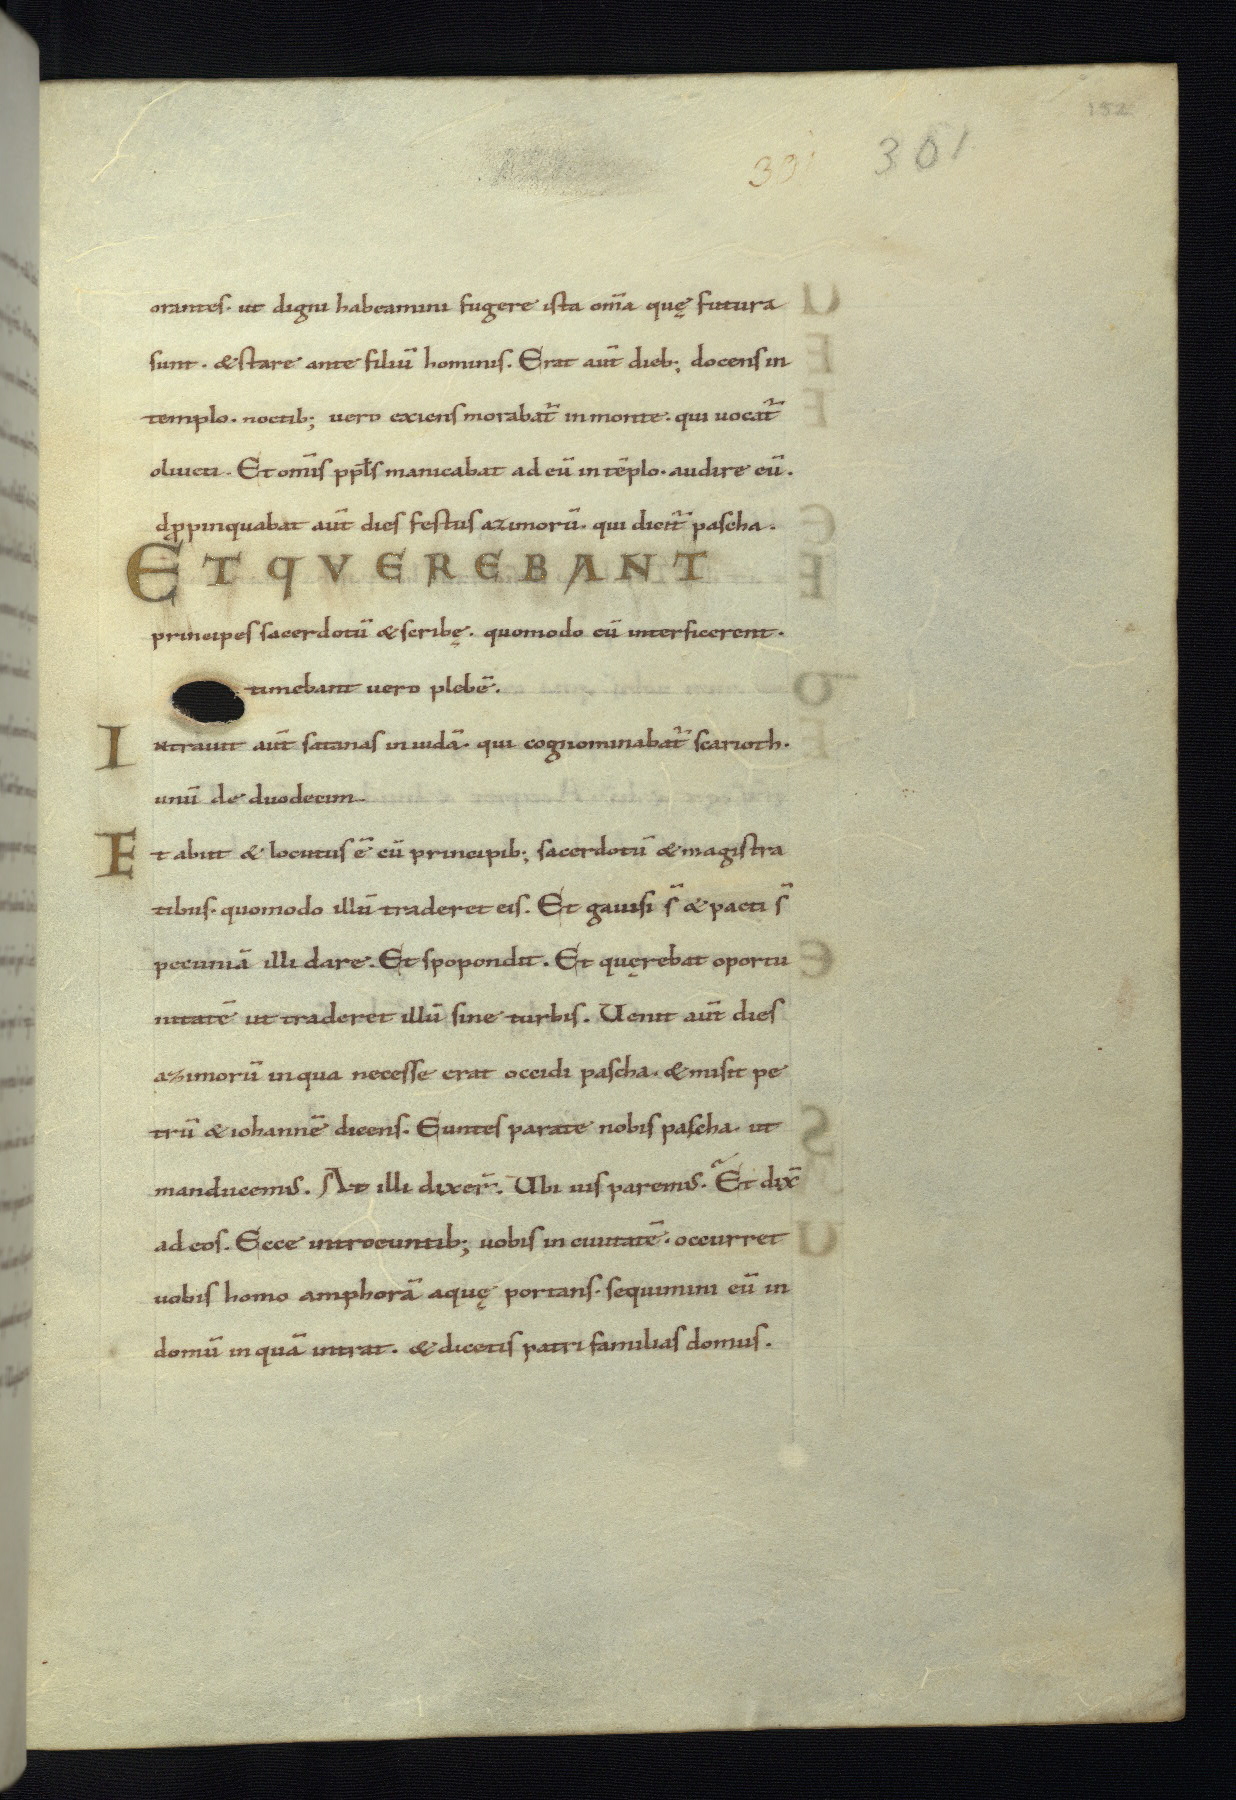 152
331 301
orantes. ut digni habeamini fugere ista om̄a quę futura
sunt. & stare ante filiū hominis. Erat aut̄ dieb; docens in
templo. noctib; uero exiens morabat᷑ in monte. qui uocat᷑
oliueti. Et om̄is ppl̄s manicabat ad eū in tēplo. audire eū.
dp̱pinquabat aut̄ dies festus azimorū. qui dicit᷑ pascha.
ET QVEREBANT
principes sacerdotū & scribę. quomodo eū interficerent.
timebant uero plebē.
Intrauit aut̄ satanas in iudā. qui cognominabat᷑ scarioth.
unū de duodecim.
Et abiit & locutus ē cū principib; sacerdotū & magistra
tibus. quomodo illū traderet eis. Et gauisi s̄ & pacti s̄
pecuniā illi dare. Et spopondit. Et quęrebat oportu
nitatē ut traderet illū sine turbis. Uenit aut̄ dies
azimorū in qua necesse erat occidi pascha. & misit pe
trū & iohannē dicens. Euntes parate nobis pascha. ut
manducemus. At illi dixer̄. Ubi uis paremus. Et dix̄
ad eos. Ecce introeuntib; uobis in ciuitatē. occurret
uobis homo amphorā aquę portans. sequimini eū in
domū in quā intrat. & dicetis patri familias domus.